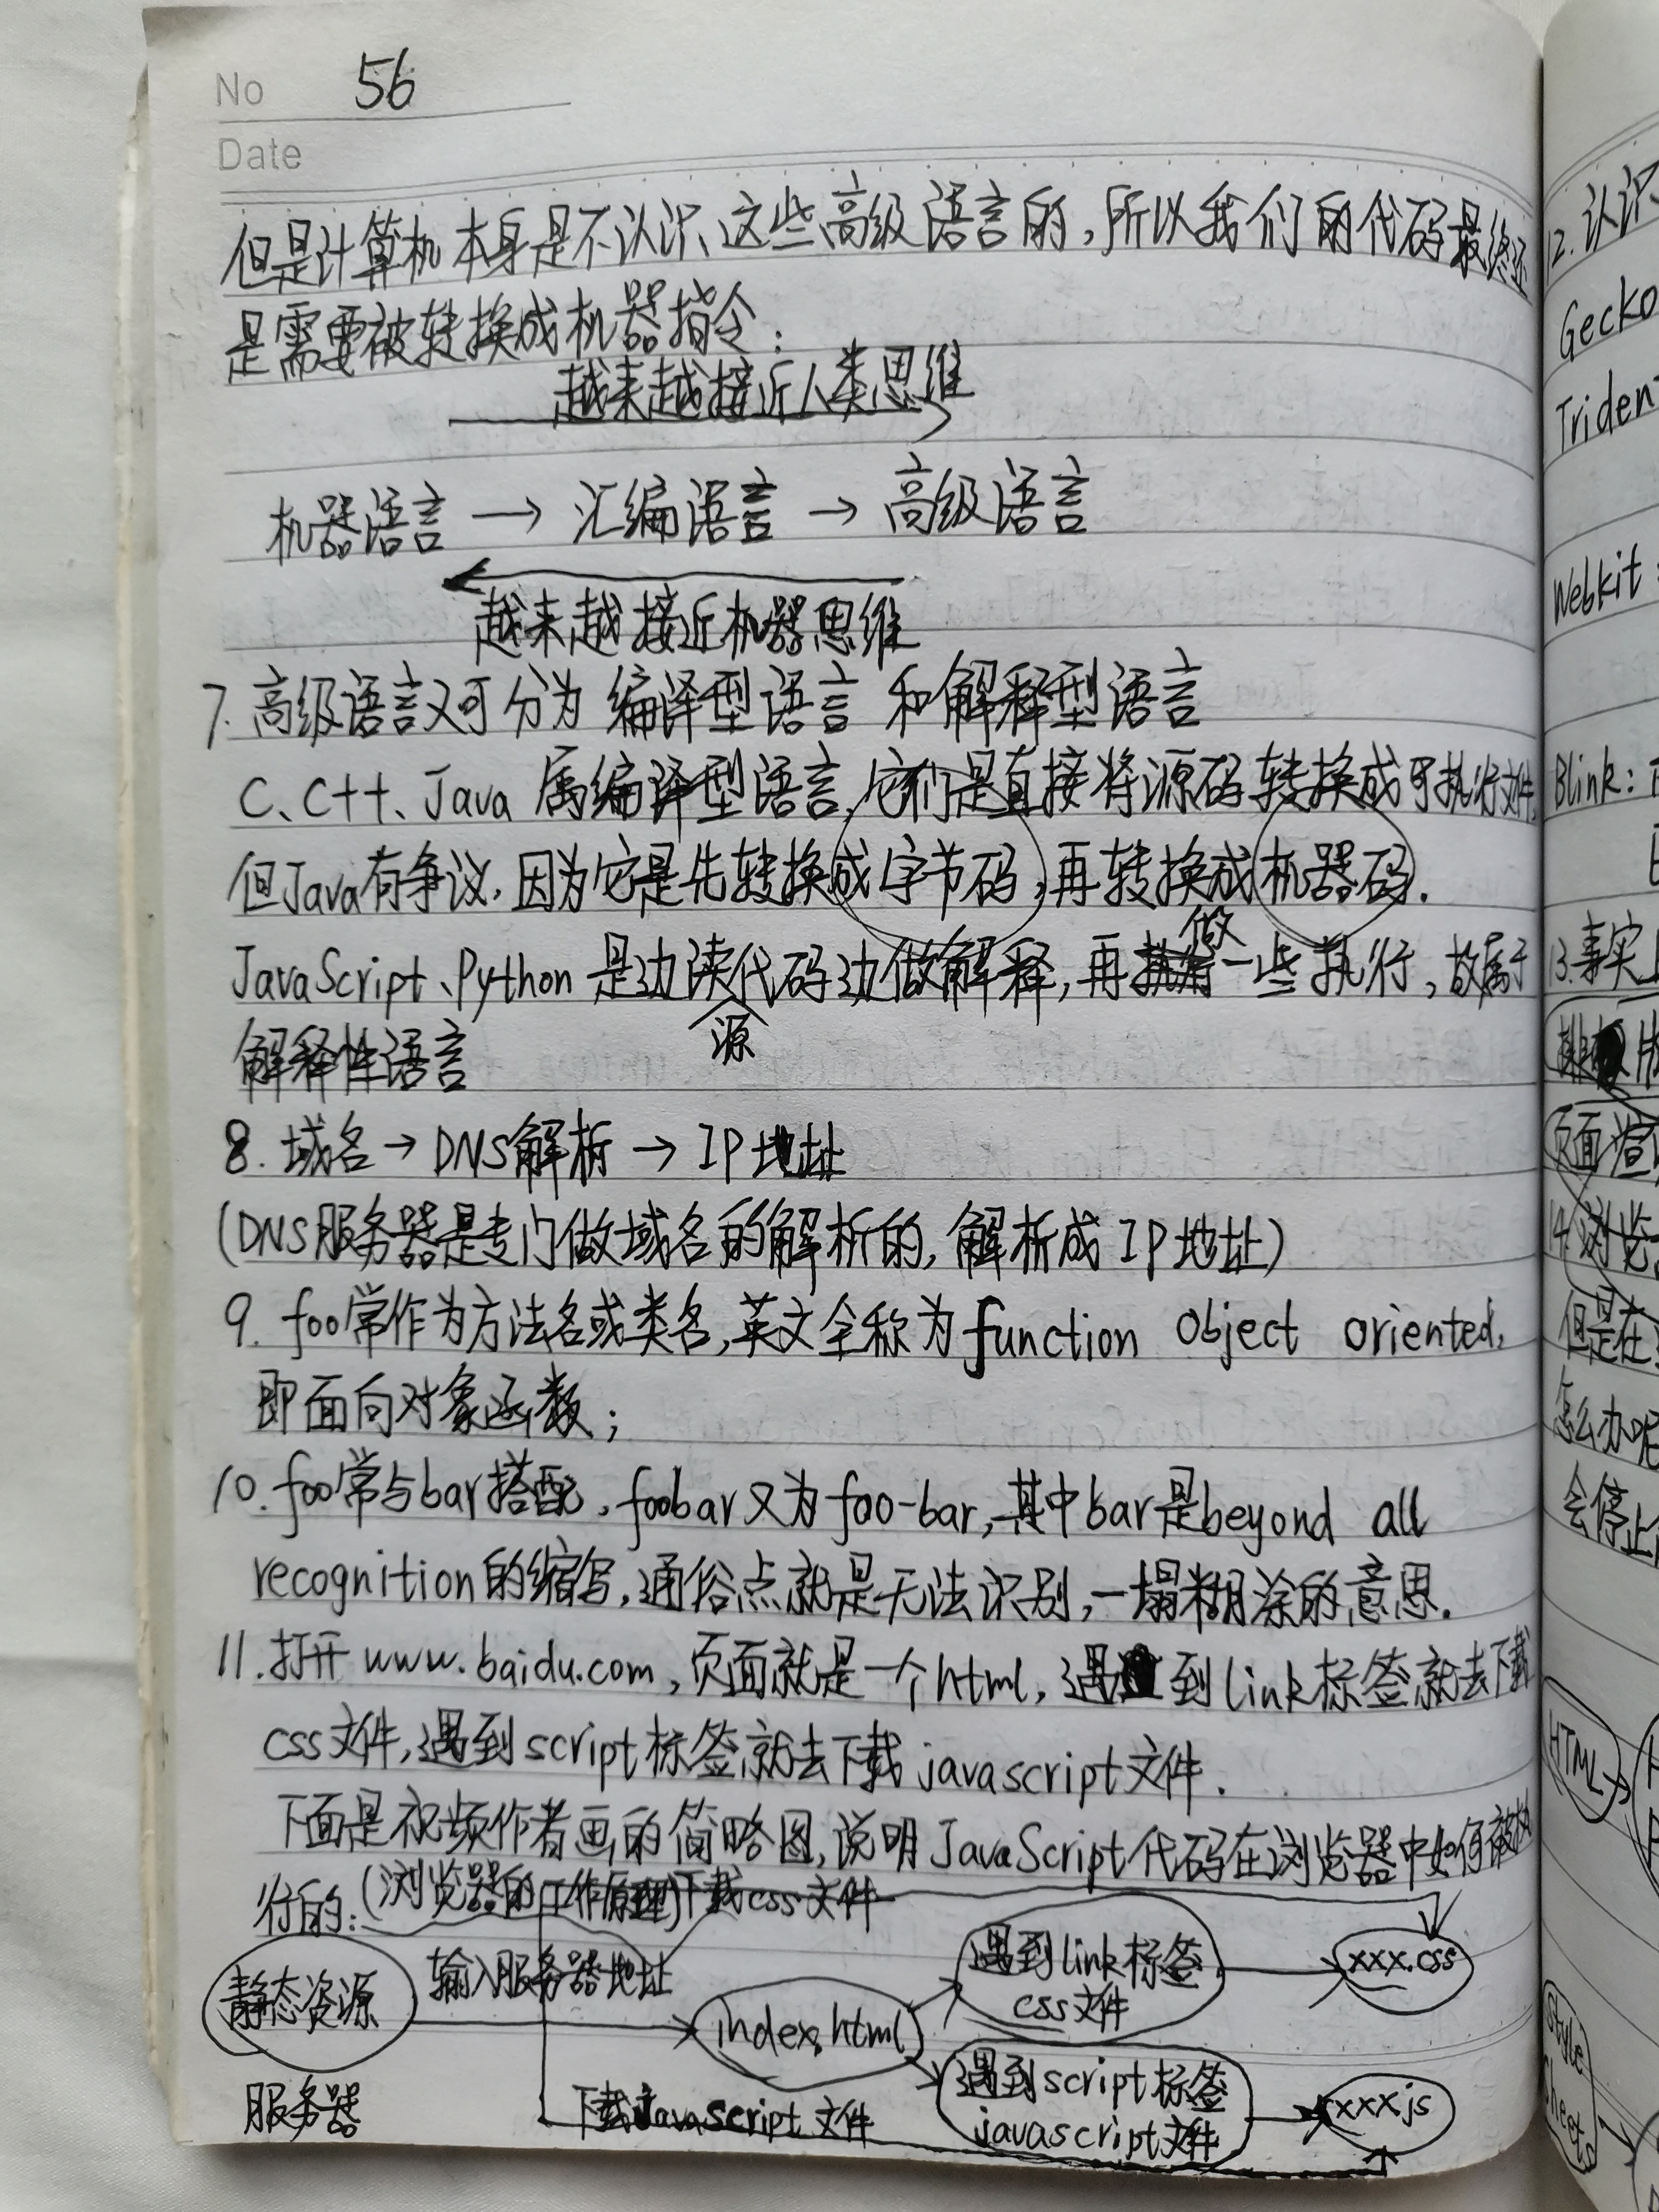 No 56
Date
但是计算机本身是不认识这些高级语言的,所以我们的代码最终还
是需要被转换成机器指令:
越来越接近人类思维
机器语言 → 汇编语言 → 高级语言
越来越接近机器思维
7. 高级语言又可分为 编译型语言 和解释型语言
C、C++、Java 属编译型语言,它们是直接将源码转换成可执行文件,
但Java有争议,因为它是先转换成字节码,再转换成机器码.
JavaScript、Python 是边读源代码边做解释,再做一些执行,故属于
解释性语言
8. 域名→DNS解析→IP地址
(DNS服务器是专门做域名的解析的,解析成IP地址)
9. foo常作为方法名或类名,英文全称为function object oriented,
即面向对象函数;
10. foo常与bar搭配,foobar又为foo-bar,其中bar是beyond all
recognition的缩写,通俗点就是无法识别,一塌糊涂的意思.
11. 打开www.baidu.com,页面就是一个html,遇到link标签就去下载
css文件,遇到script标签就去下载javascript文件.
下面是视频作者画的简略图,说明JavaScript代码在浏览器中如何被执
行的:(浏览器的工作原理)下载css文件
静态资源 输入服务器地址 index.html 遇到link标签 xxx.css
css文件
服务器 下载JavaScript文件 遇到script标签 xxx.js
javascript文件
12. 认识
Gecko
Triden
Webkit:
Blink:
13. 事实
页面渲
14. 浏览
但是在
怎么办呢
会停止
HTML
Style
Sheets